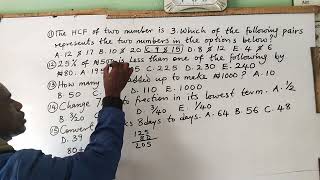 ⑪ The HCF of two numbers is 3. Which of the following pairs
represents the two numbers in the options below:
A. 12 & 17 B. 10 & 20 C. 9 & 15 D. 8 & 12 E. 4 & 6
⑫ 25% of ₦500 is less than one of the following by
₦80. A. 195 C. 225 D. 230 E. 240
⑬ How many added up to make ₦1000? A. 10
B. 50 C. D. 110 E. 1000
⑭ Change to fraction in its lowest term. A. 1/2
B. D. 3/40 E. 1/40
⑮ Convert 8 days to days. A. 64 B. 56 C. 48
D. 39
125
80
205
80